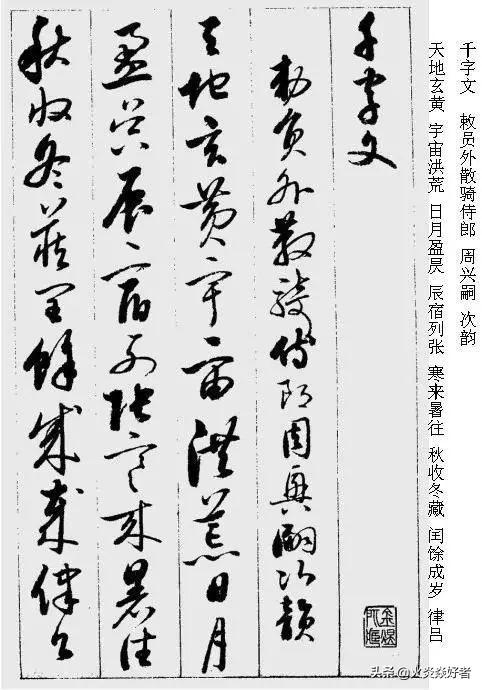 千字文 敕员外散骑侍郎 周兴嗣 次韵
天地玄黄 宇宙洪荒 日月盈昃 辰宿列张 寒来暑往 秋收冬藏 闰馀成岁 律吕
千字文
勑員外散騎侍郎周興嗣次韻
天地玄黃宇宙洪荒日月
盈昃辰宿列張寒來暑往
秋收冬藏閏餘成歲律吕
头条 @火炎焱好者